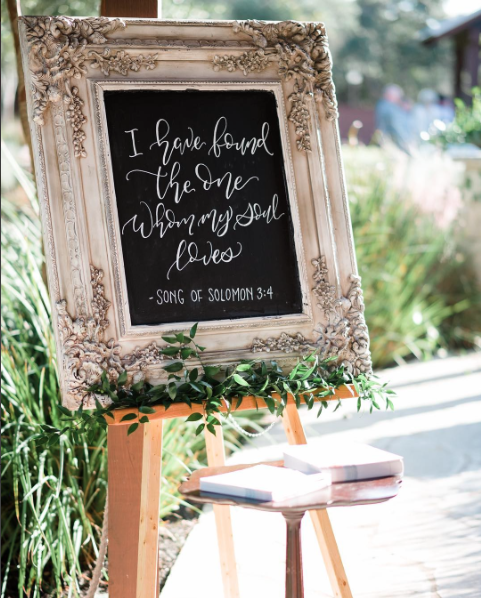 I have found
the one
whom my soul
loves
- SONG OF SOLOMON 3:4